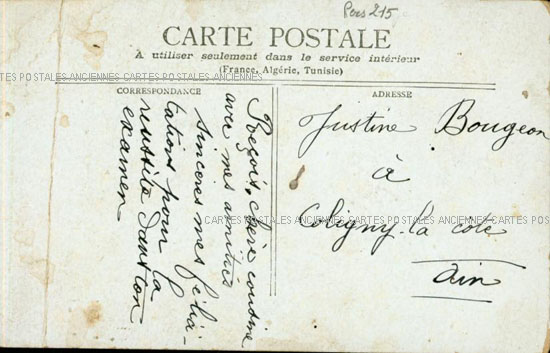 Pers 215
CARTE POSTALE
A utiliser seulement dans le service intérieur
(France, Algérie, Tunisie)
CARTES POSTALES ANCIENNES CARTES POSTALES ANCIENNES
CORRESPONDANCE
Reçois, chère cousine
avec mes amitiés
sincères mes félici-
tations pour ta
réussite dans ton
examen
ADRESSE
Justine Bougeon
à
Coligny-la côte
Ain
CARTES POSTALES ANCIENNES CARTES POSTALES ANCIENNES